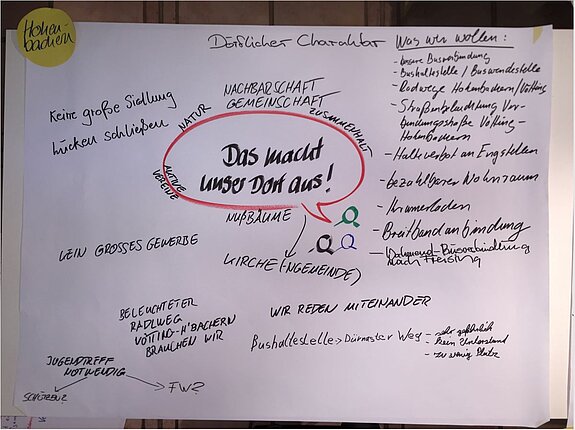 Hohen-
bachern
Dörflicher Charakter
Keine große Siedlung
Lücken schließen
NATUR
NACHBARSCHAFT
GEMEINSCHAFT
ZUSAMMENHALT
AKTIVE
VEREINE
Das macht
unser Dorf aus!
NUßBÄUME
KIRCHE(NGEMEINDE)
KEIN GROSSES GEWERBE
BELEUCHTETER
RADLWEG
VÖTTING-H'BACHERN
BRAUCHEN WIR
WIR REDEN MITEINANDER
Bushaltestelle > Dürnaster Weg
- sehr gefährlich
- kein Unterstand
- zu wenig Platz
JUGENDTREFF
NOTWENDIG
SCHÜTZEN?
FW?
Was wir wollen:
- bessere Busverbindung
- Bushaltestelle / Buswendestelle
- Radwege Hohenbachern/Vötting
- Straßenbeleuchtung Ver-
bindungsstraße Vötting-
Hohenbachern
- Halteverbot an Engstellen
- bezahlbarer Wohnraum
- Kramerladen
- Breitbandanbindung
- Busverbindung
nach Freising